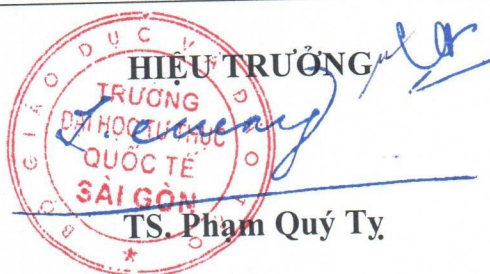 HIỆU TRƯỞNG
BỘ GIÁO DỤC VÀ ĐÀO TẠO
TRƯỜNG
ĐẠI HỌC TƯ THỤC
QUỐC TẾ
SÀI GÒN
TS. Phạm Quý Tỵ